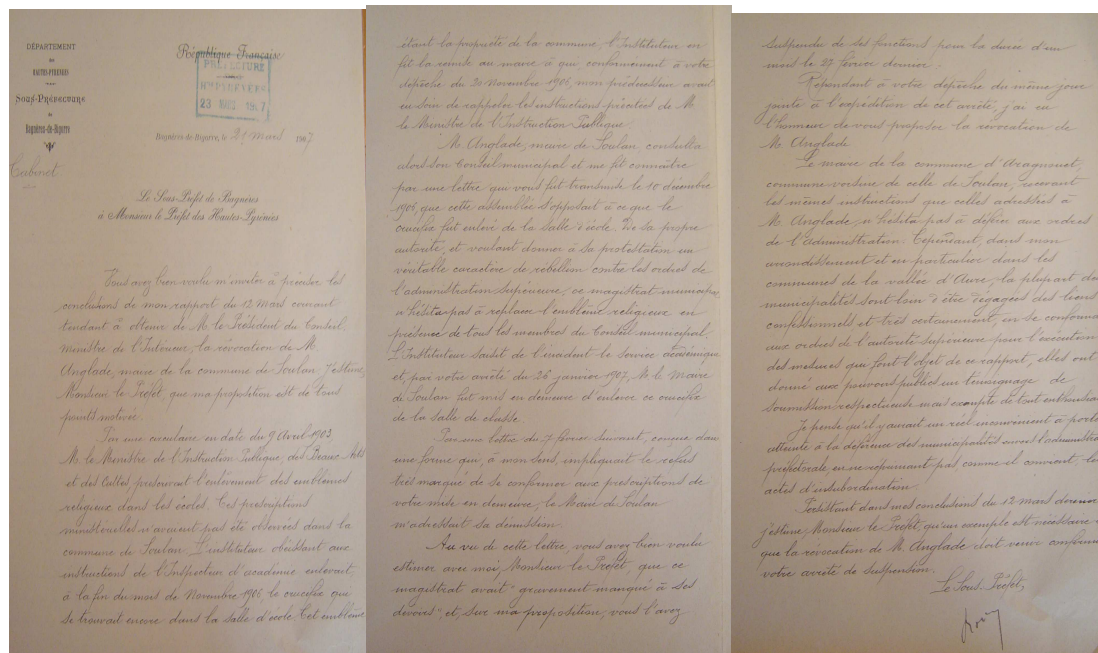 DÉPARTEMENT
DES
HAUTES-PYRÉNÉES
SOUS-PRÉFECTURE
de
Bagnères-de-Bigorre
Cabinet
République Française
PRÉFECTURE
23 MARS 1907
Bagnères-de-Bigorre, le 21 Mars 1907
Le Sous-Préfet de Bagnères
à Monsieur le Préfet des Hautes-Pyrénées
Vous avez bien voulu m'inviter à préciser les
conclusions de mon rapport du 12 Mars courant
tendant à obtenir de M. le Président du Conseil,
Ministre de l'Intérieur, la révocation de M.
Anglade, maire de la commune de Soulan. J'estime,
Monsieur le Préfet, que ma proposition est de tous
points motivée.
Par une circulaire en date du 9 Avril 1903,
M. le Ministre de l'Instruction Publique, des Beaux Arts
et des Cultes prescrivait l'enlèvement des emblèmes
religieux dans les écoles. Ces prescriptions
ministérielles n'avaient pas été observées dans la
commune de Soulan. L'instituteur obéissant aux
instructions de l'Inspecteur d'académie enlevait,
à la fin du mois de Novembre 1906 le crucifix qui
se trouvait encore dans la salle d'école. Cet emblème
étant la propriété de la commune, l'Instituteur en
fit la remise au maire à qui conformément à votre
dépêche du 20 Novembre 1906, mon prédécesseur avait
eu soin de rappeler les instructions précitées de M.
le Ministre de l'Instruction Publique.
M. Anglade, maire de Soulan consulta
alors son Conseil municipal et me fit connaître
par une lettre qui vous fut transmise le 10 décembre
1906, que cette assemblée s'opposait à ce que le
crucifix fut enlevé de la salle d'école. De sa propre
autorité, et voulant donner à sa protestation un
véritable caractère de rébellion contre les ordres de
l'administration supérieure, ce magistrat municipal
n'hésita pas à replacer l'emblème religieux en
présence de tous les membres du Conseil municipal.
L'Instituteur saisit de l'incident le service académique
et, par votre arrêté du 26 janvier 1907, M. le Maire
de Soulan fut mis en demeure d'enlever ce crucifix
de la salle de classe.
Par une lettre du 7 février suivant, conçue dans
une forme qui, à mon sens, impliquait le refus
très marqué de se conformer aux prescriptions de
votre mise en demeure, le Maire de Soulan
m'adressait sa démission.
Au vu de cette lettre, vous avez bien voulu
estimer avec moi, Monsieur le Préfet, que ce
magistrat avait "gravement manqué à ses
devoirs", et, sur ma proposition, vous l'avez
suspendu de ses fonctions pour la durée d'un
mois le 27 février dernier.
Répondant à votre dépêche du même jour
jointe à l'expédition de cet arrêté, j'ai eu
l'honneur de vous proposer la révocation de
M. Anglade
Le maire de la commune d'Aragnouet,
commune voisine de celle de Soulan, recevant
les mêmes instructions que celles adressées à
M. Anglade, n'hésita pas à déférer aux ordres
de l'administration. Cependant, dans mon
arrondissement et en particulier dans les
communes de la vallée d'Aure, la plupart des
municipalités sont loin d'être dégagées des liens
confessionnels et très certainement, en se conformant
aux ordres de l'autorité supérieure pour l'exécution
des mesures qui font l'objet de ce rapport, elles ont
donné aux pouvoirs publics un témoignage de
soumission respectueuse mais exempte de tout enthousiasme
Je pense qu'il y aurait un réel inconvénient à porter
atteinte à la déférence des municipalités envers l'administration
préfectorale en ne réprimant pas comme il convient, les
actes d'insubordination.
Persistant dans mes conclusions du 12 mars dernier
j'estime, Monsieur le Préfet, qu'un exemple est nécessaire et
que la révocation de M. Anglade doit venir confirmer
votre arrêté de suspension.
Le Sous-Préfet,